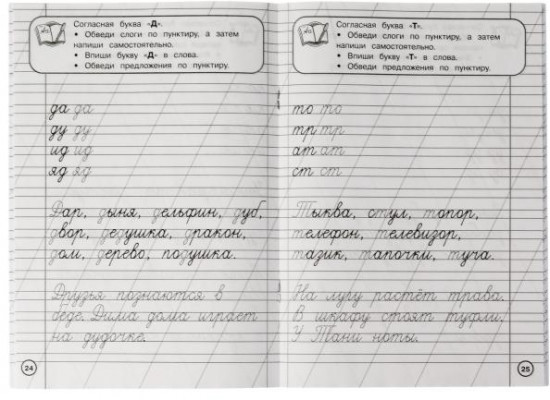 Согласная буква «Д».
• Обведи слоги по пунктиру, а затем
напиши самостоятельно.
• Впиши букву «Д» в слова.
• Обведи предложения по пунктиру.
да да
ду ду
ид ид
яд яд
Дар, дыня, дельфин, дуб,
двор, дедушка, дракон,
дом, дерево, подушка.
Друзья познаются в
беде. Дима дома играет
на дудочке.
24
Согласная буква «Т».
• Обведи слоги по пунктиру, а затем
напиши самостоятельно.
• Впиши букву «Т» в слова.
• Обведи предложения по пунктиру.
то то
тр тр
ат ат
ст от
Тыква, стул, топор,
телефон, телевизор,
тазик, тапочки, туча.
На лугу растёт трава.
В шкафу стоят туфли.
У Тани ноты.
25